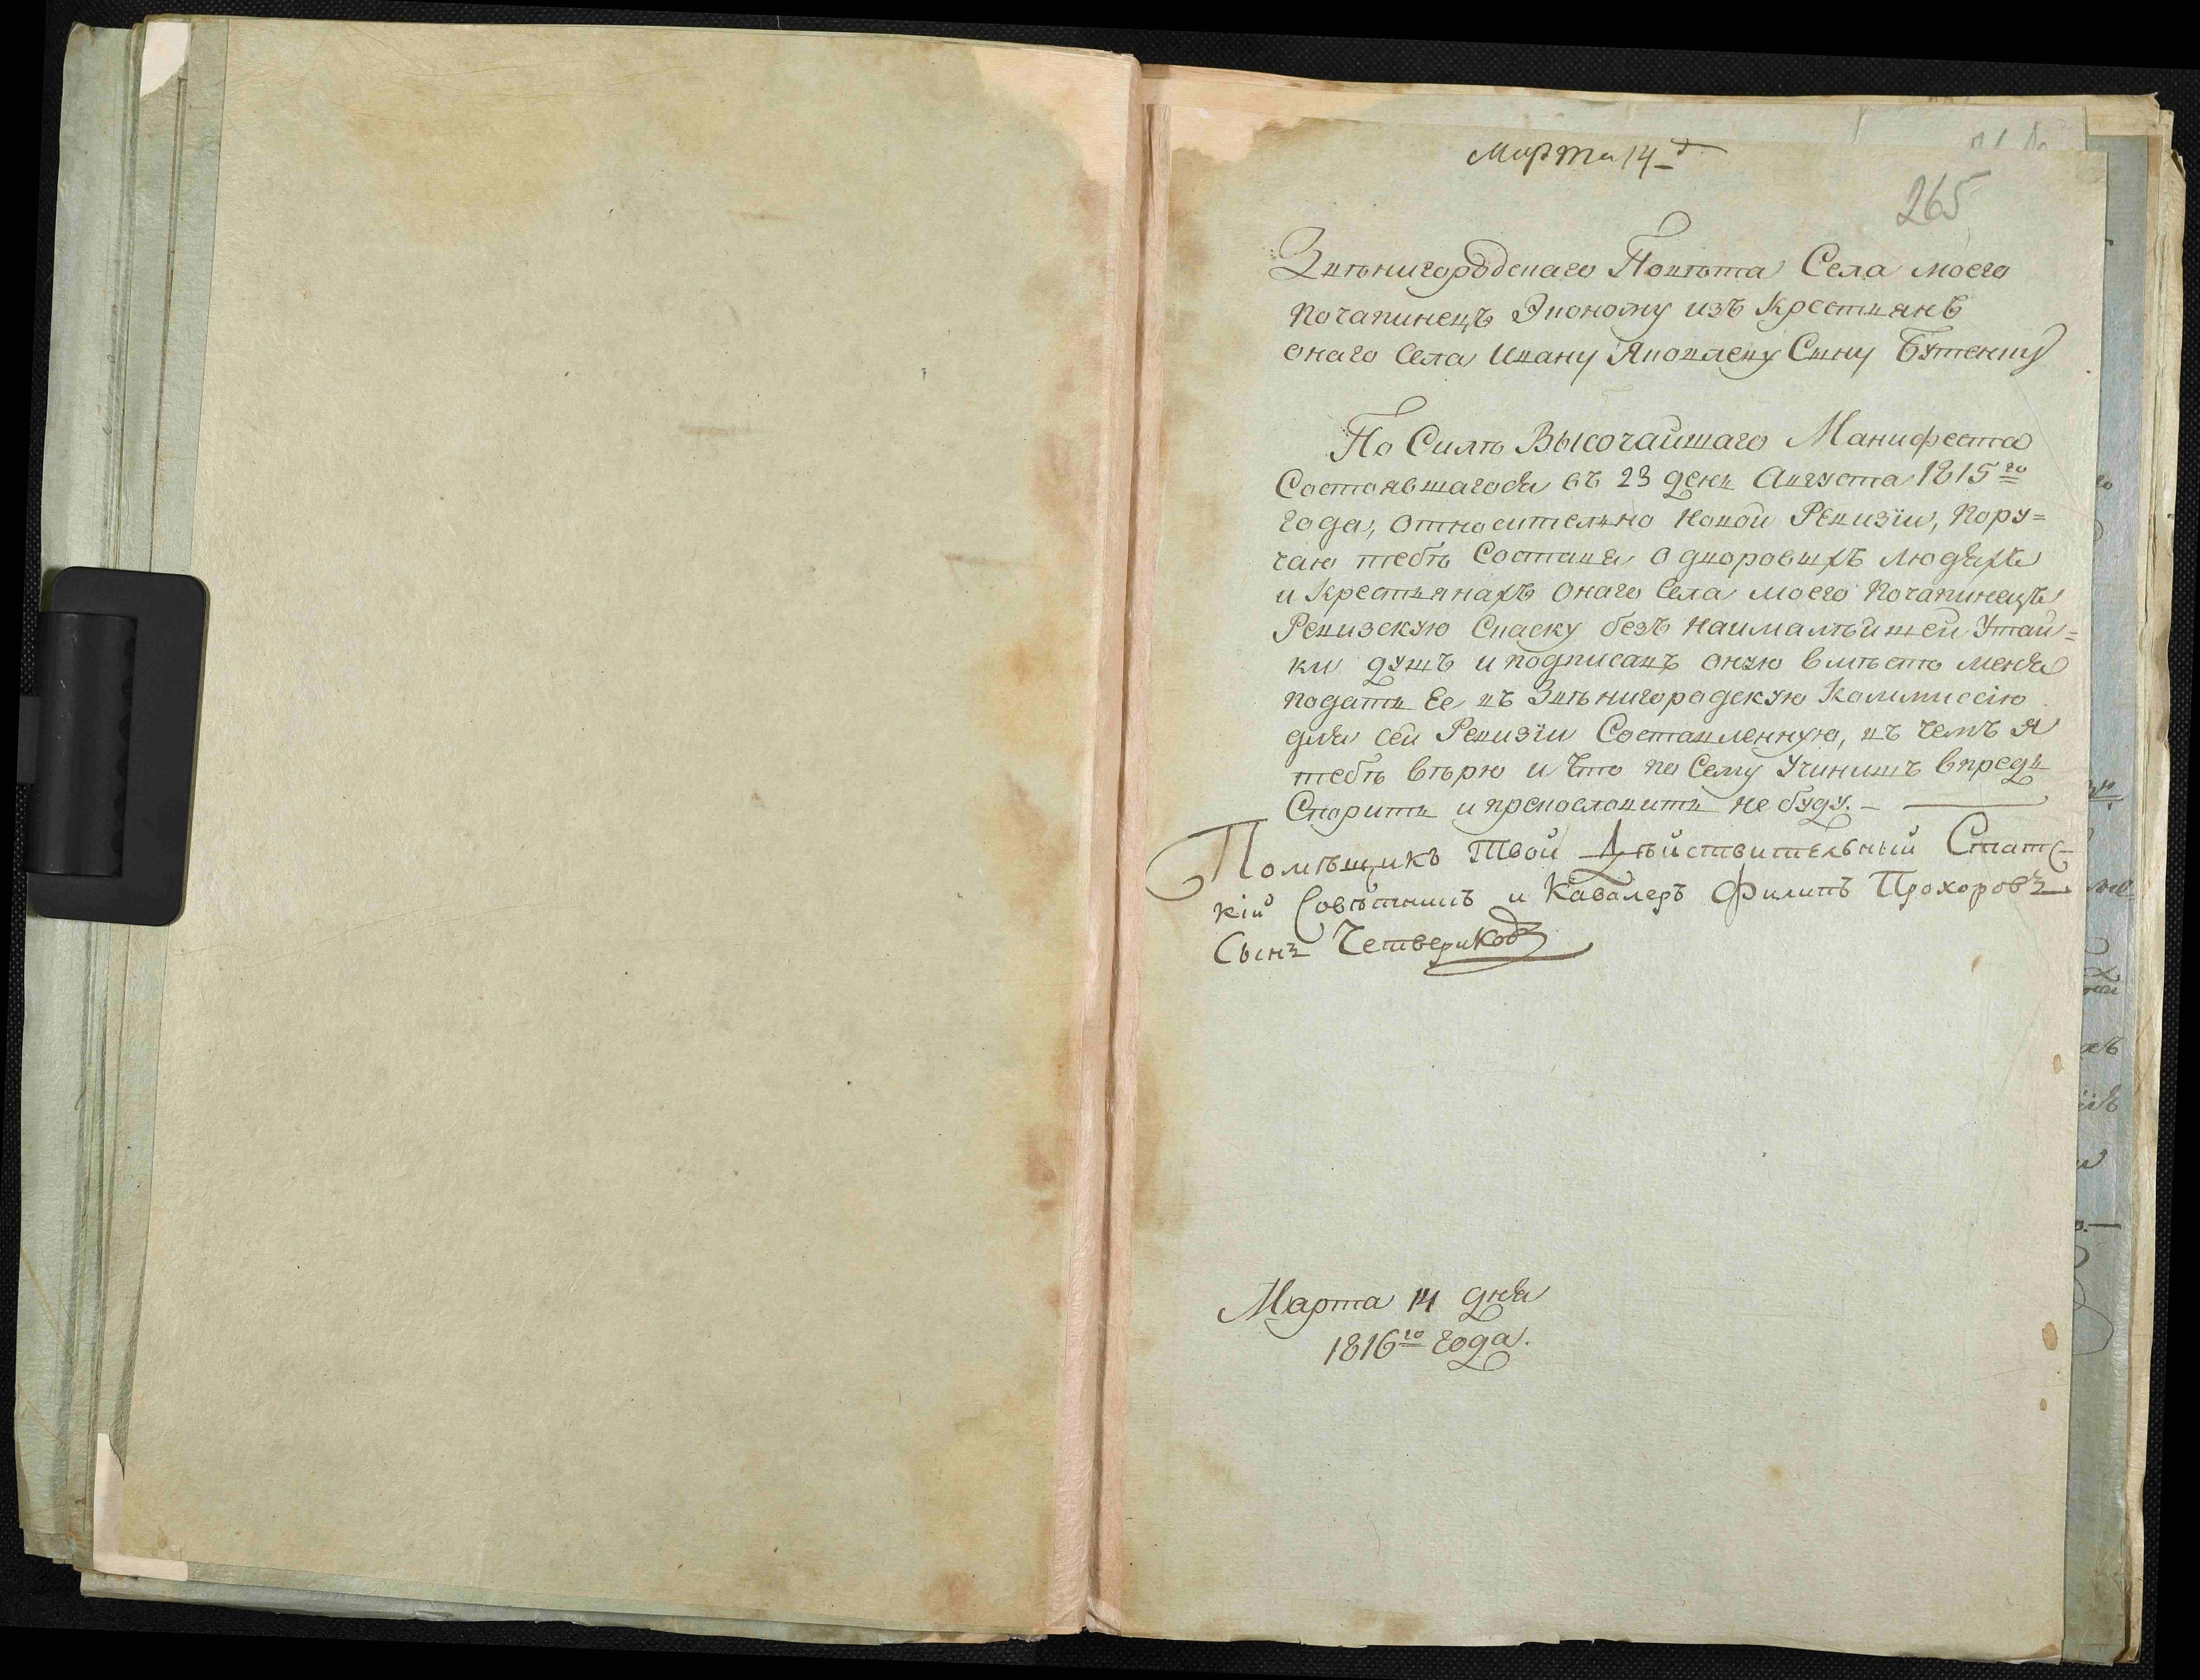 Марта 14 д
265
Звѣнигородскаго Повѣта Села моего
Почапинецъ Эконому изъ Крестьянъ
онаго Села Ивану Яковлеву Сыну Бутенку
По Силѣ Высочайшаго Манифеста
Состоявшагося въ 23 день Августа 1815го
года, относительно новой Ревизіи, Пору=
чаю тебѣ Составя о дворовыхъ людяхъ
и Крестьянахъ онаго Села моего Почапинецъ
Ревизскую Скаску безъ наималѣйшей Утай=
ки душъ и подписавъ оную вмѣсто меня
подать Ее въ Звѣнигородскую Коммиссію
для сей Ревизіи Составленную, въ чемъ я
тебѣ вѣрю и что по Сему Учинишъ впредь
Спорить и прекословить не буду. —
Помѣщикъ твой Дѣйствительный Статс-
кій Совѣтникъ и Кавалеръ Филипъ Прохоровъ
Сынъ Четвериковъ
Марта 14 дня
1816го года.